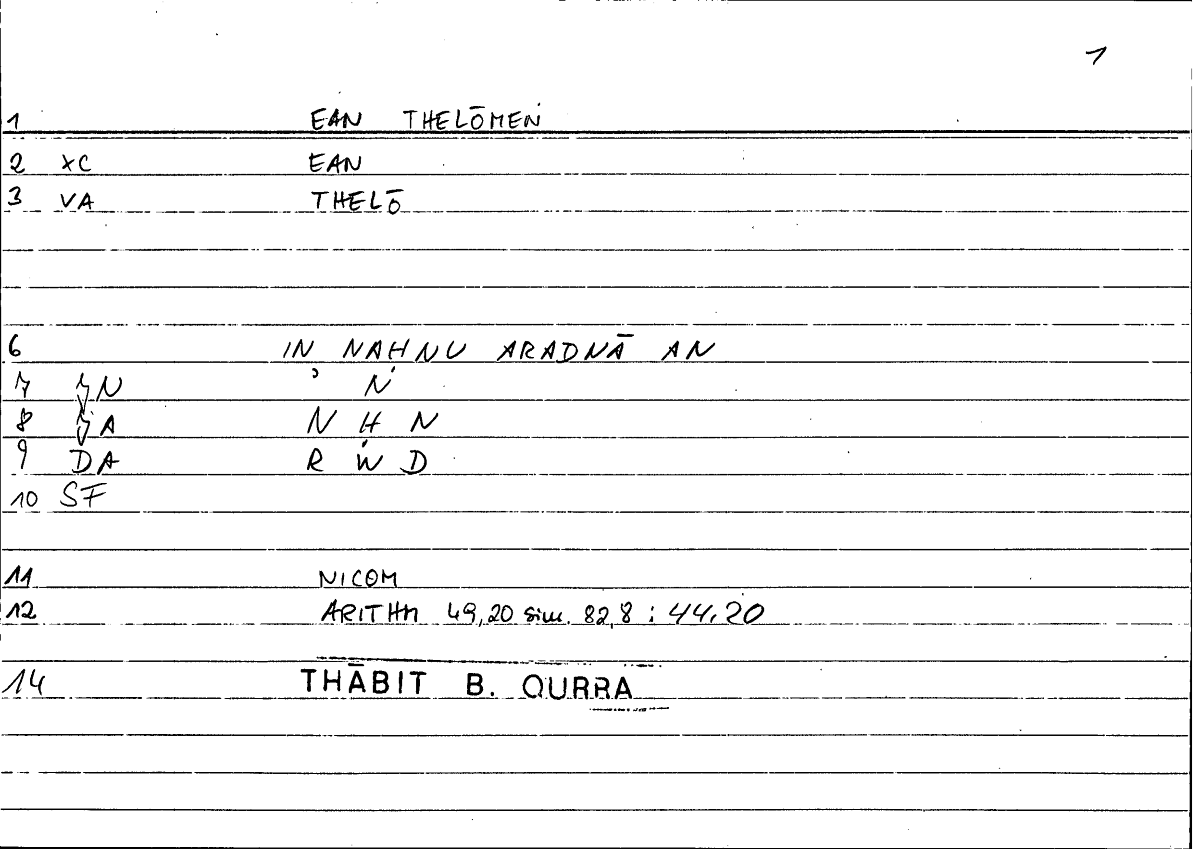 1
1 EAN THELŌMEN
2 XC EAN
3 VA THELŌ
6 IN NAḤNU ARADNĀ AN
7 N ʾ N
8 A N Ḥ N
9 DA R W D
10 SF
11 NICOM
12 ARITHM 49,20 sim. 82,8 : 44,20
14 THĀBIT B. QURRA